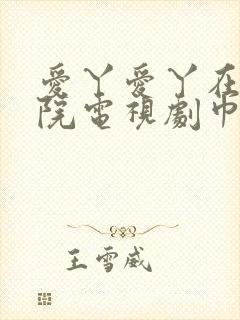 愛丫愛丫在
院電視劇巾
王雪威